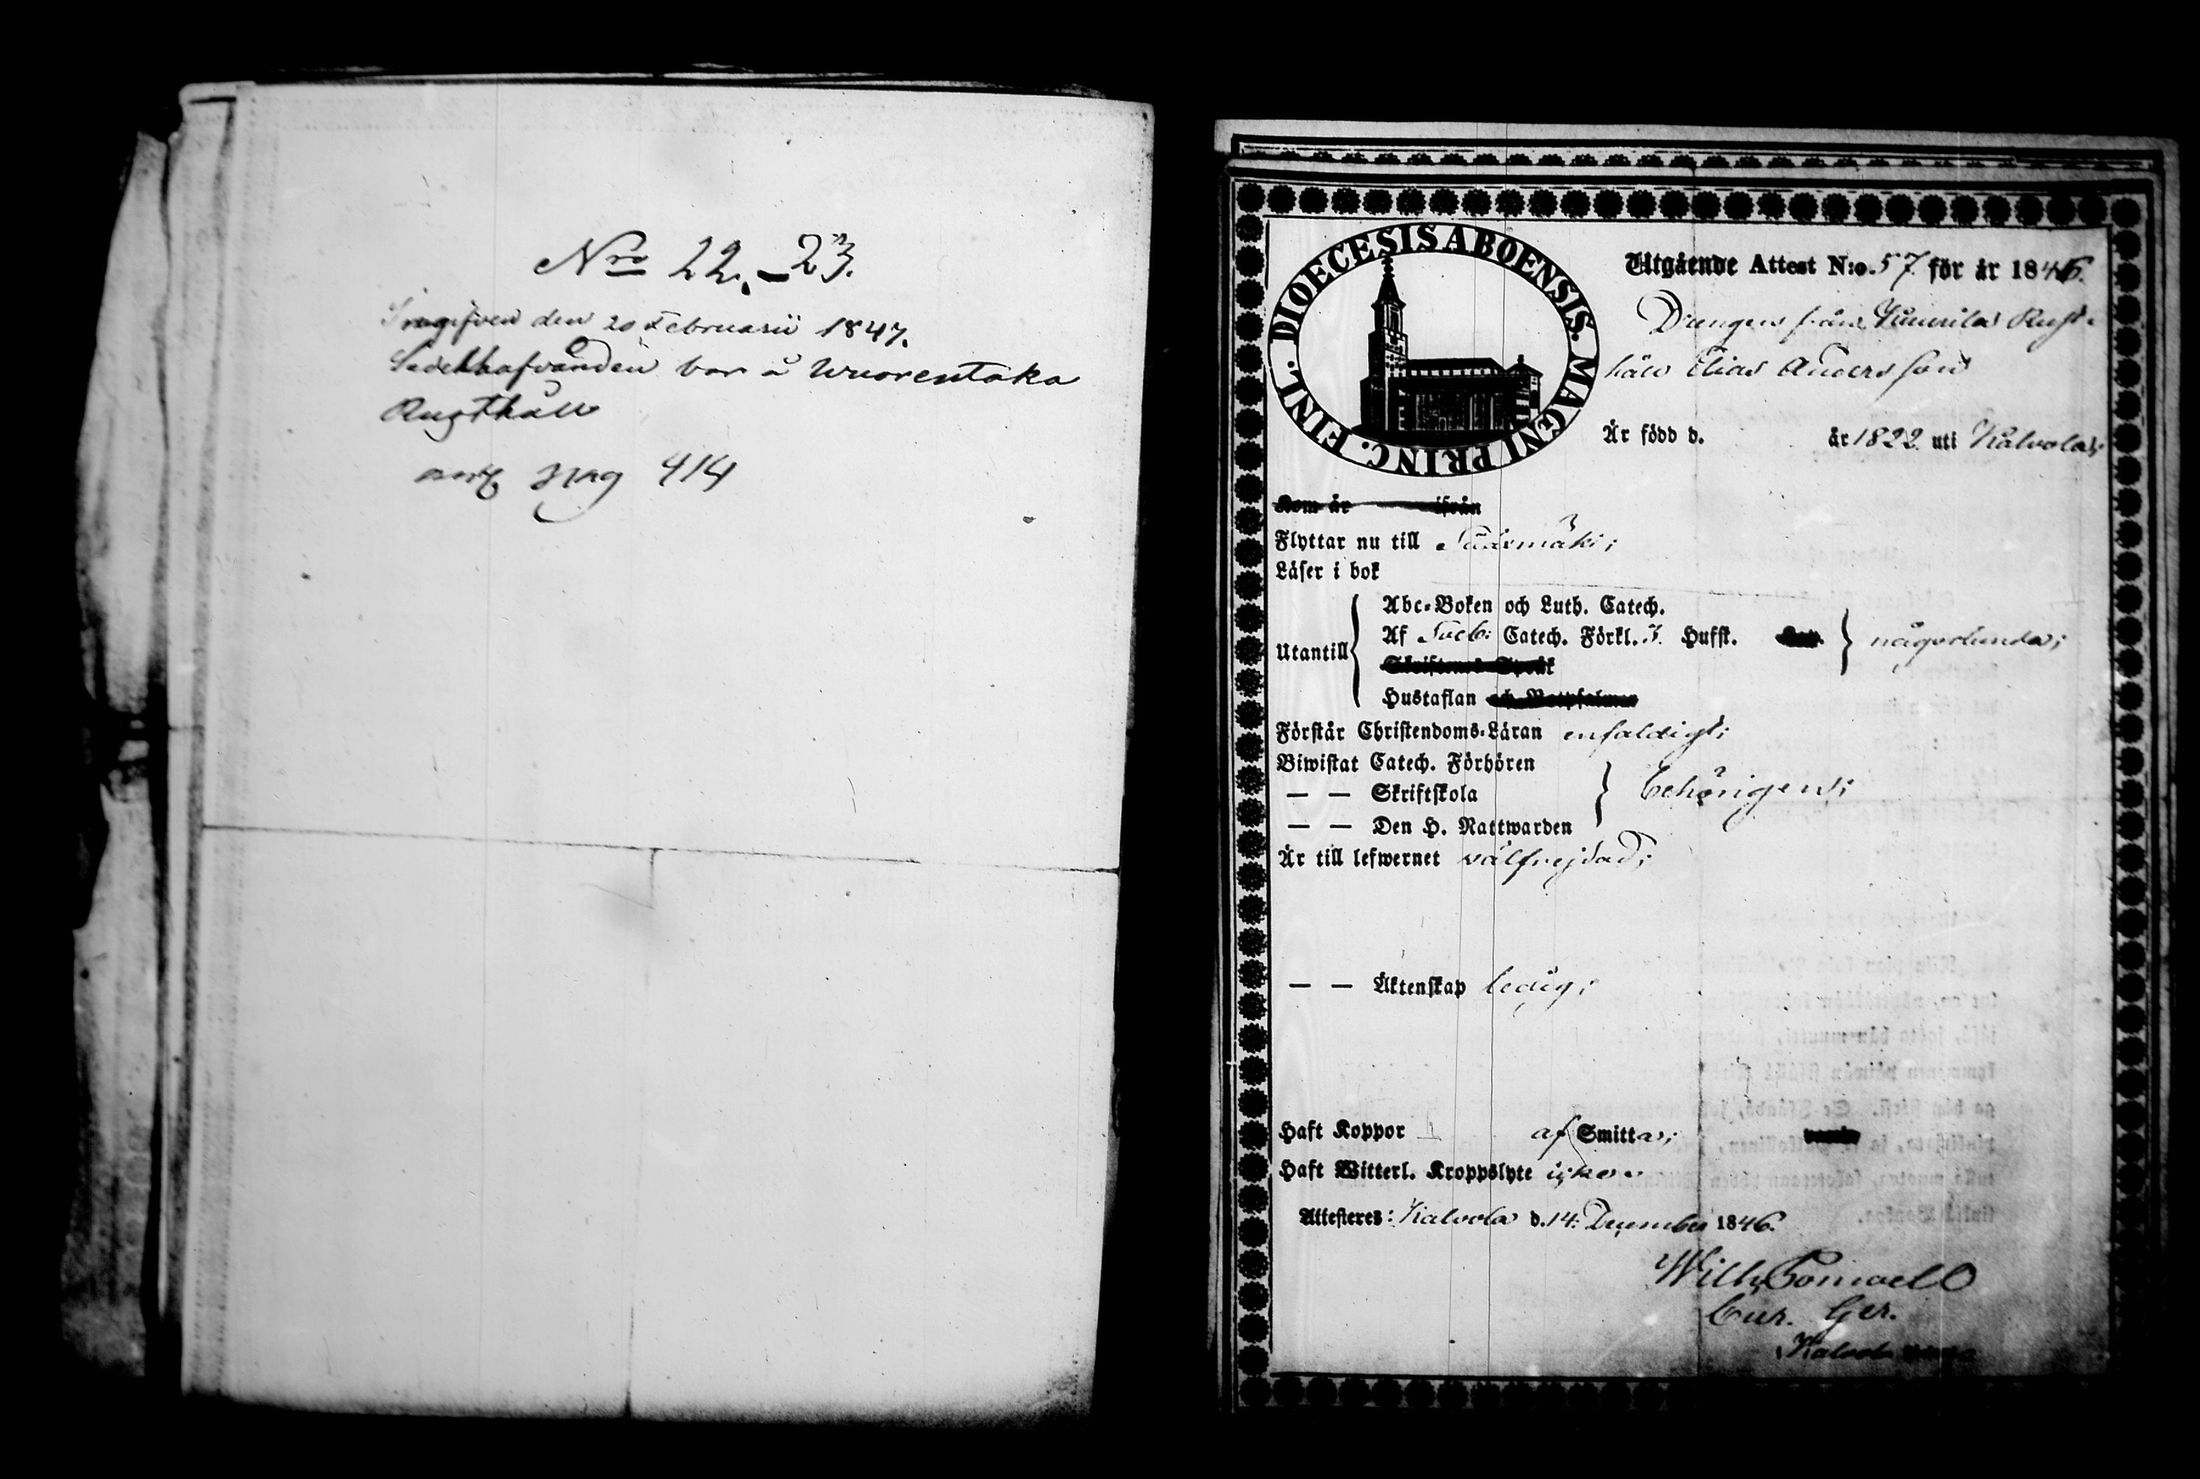 Nro 22.-23.
Ingifven den 20 Februarii 1847.
Sedelhafvanden bor å Wuorentaka
Rusthåll
pag 414
DIOECESIS ABOENSIS. MAGNI PRINC. FINL.
Utgående Attest N:o. 57 för år 1846.
Drengen från Rust-
håll Elias Andersson
Är född d. år 1822 uti Kalvola;
Kom år ifrån
Flyttar nu till
Läser i bok
Utantill
Abc-Boken och Luth. Catech.
Af Sveb: Catech. Förkl. 3. Hufst. någorlunda;
Skriftens Språk
Hustaflan och Botpsalmer
Förstår Christendoms-Läran enfaldigt;
Biwistat Catech. Förhören
— — Skriftskola behörigen;
— — Den H. Nattwarden
Är till lefwernet välfrejdad;
— — Äktenskap ledig;
Haft Koppor af Smitta;
Haft Witterl. Kroppslyte icke.
Attesteres: Kalvola d. 14. December 1846.
Wilh.
Cur. Ger.